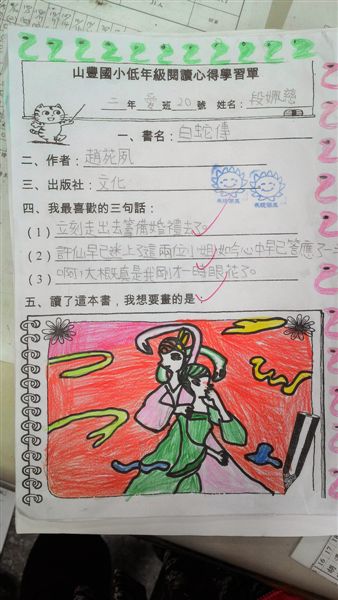 山豐國小低年級閱讀心得學習單
二年愛班20號 姓名：段姵慈
一、書名：白蛇傳
二、作者：趙苑夙
三、出版社：文化
四、我最喜歡的三句話：
(1) 立刻走出去籌備婚禮去了。
(2) 許仙早已迷上了這兩位小姐 心中早已答應了一
(3) 啊！大概是我剛才一時眼花了。
五、讀了這本書，我想要畫的是